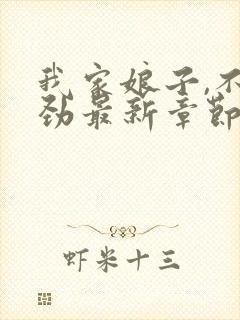 我家娘子,不
劲最新章節
虾米十三